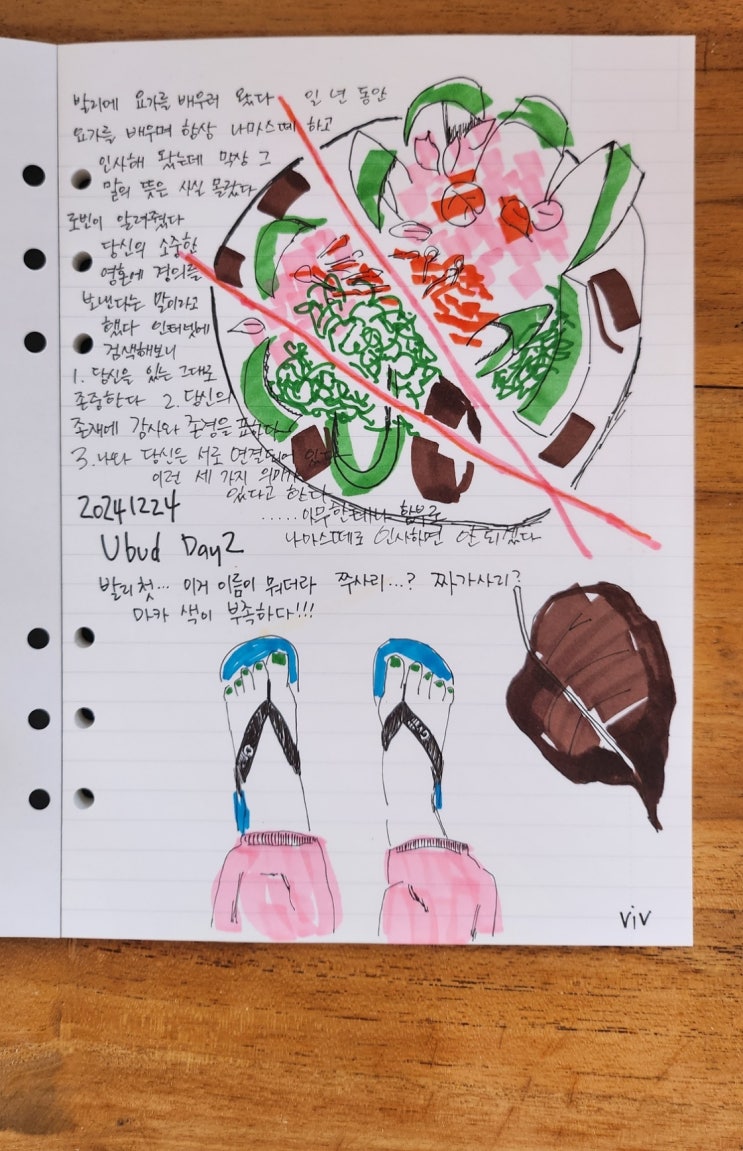 발리에 요가를 배우러 왔다 일 년 동안
요가를 배우며 항상 나마스떼 하고
인사해 왔는데 막상 그
말의 뜻은 사실 몰랐다
로빈이 알려줬다
당신의 소중한
영혼에 경의를
보낸다는 말이라고
했다 인터넷에
검색해보니
1. 당신을 있는 그대로
존중한다 2. 당신의
존재에 감사와 존경을 표한다
3. 나와 당신은 서로 연결되어 있다
이런 세 가지 의미가
있다고 한다
.....아무한테나 함부로
나마스떼로 인사하면 안 되겠다
20241224
Ubud Day2
발리 첫... 이거 이름이 뭐더라 쭈사리...? 짜가사리?
마카 색이 부족하다!!!
viv